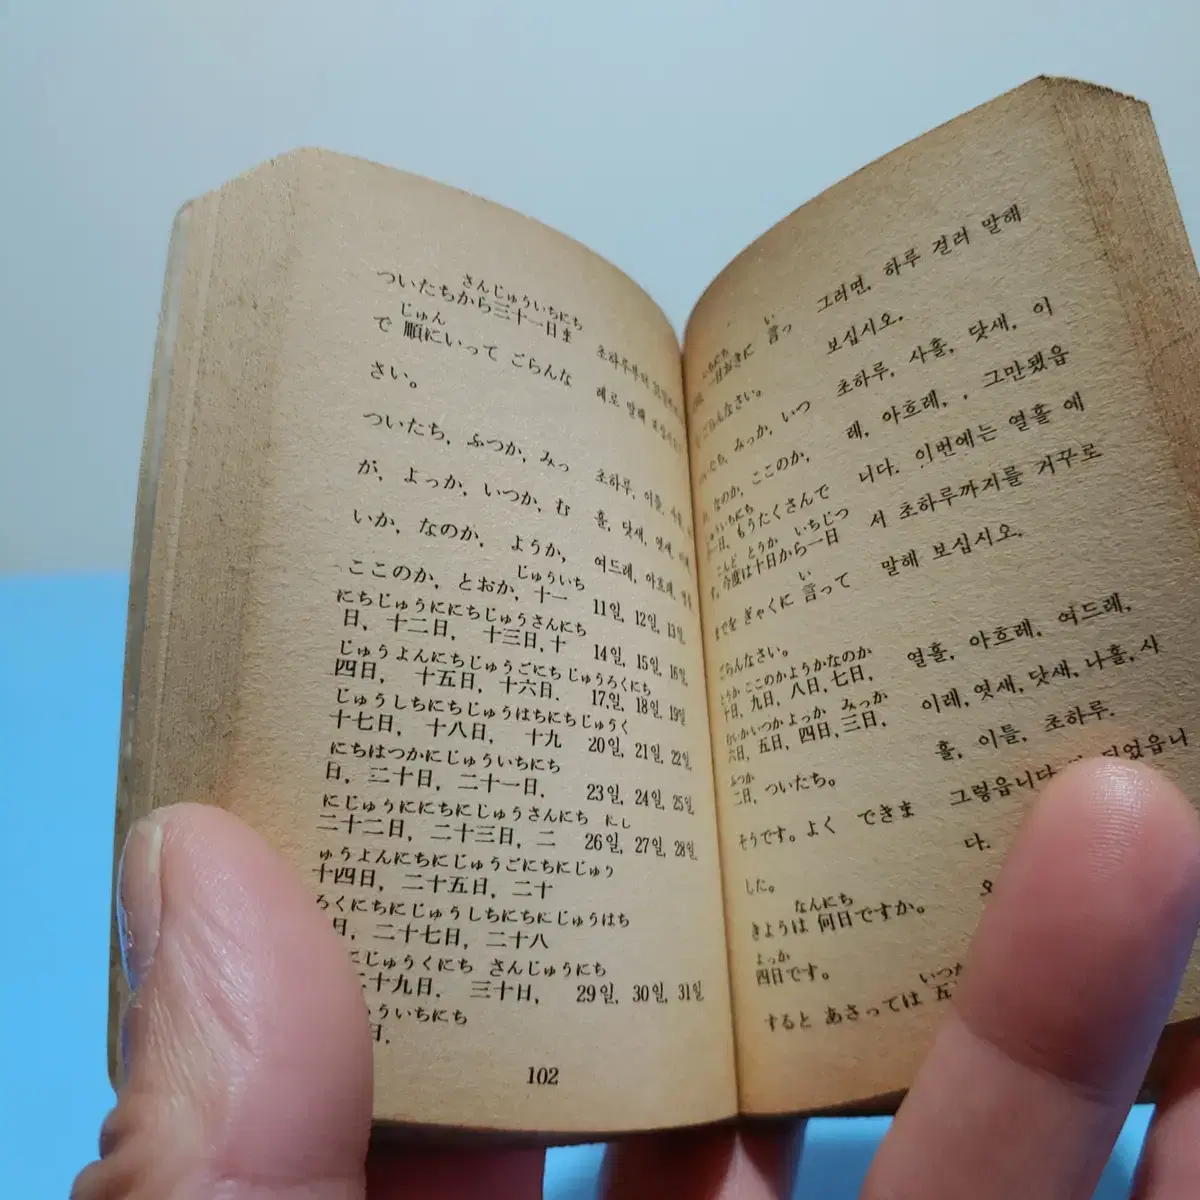 さんじゅういちにち
ついたちから三十一日ま
じゅん
で 順にいって ごらんな
さい。
ついたち, ふつか, みっ
か, よっか, いつか, む
いか, なのか, ようか,
じゅういち
ここのか, とおか, 十一
にちじゅうににちじゅうさんにち
日, 十二日, 十三日, 十
じゅうよんにちじゅうごにちじゅうろくにち
四日, 十五日, 十六日.
じゅうしちにちじゅうはちにちじゅうく
十七日, 十八日, 十九
にちはつかにじゅういちにち
日, 二十日, 二十一日.
にじゅうににちにじゅうさんにち にし
二十二日, 二十三日, 二
ゅうよんにちにじゅうごにちにじゅう
十四日, 二十五日, 二十
ろくにちにじゅうしちにちにじゅうはち
日, 二十七日, 二十八
にじゅうくにち さんじゅうにち
二十九日. 三十日,
ういちにち
日.
초하루부터
례로 말해 보십시오
초하루, 이틀, 사
흘, 닷새, 엿새,
여드레, 아흐레,
11일, 12일, 13일,
14일, 15일, 16일,
17일, 18일, 19일
20일, 21일, 22일,
23일, 24일, 25일,
26일, 27일, 28일,
29일, 30일, 31일
102
いちにち い
一日おきに 言っ
ごらんなさい。
みっか, いつ
なのか, ここのか,
もうたくさんで
こんど とうか いちじつ
す. 今度は十日から一日
い
までを ぎゃくに 言って
ごらんなさい。
とうか ここのかようかなのか
十日, 九日, 八日, 七日,
むいかいつかよっか みっか
六日, 五日, 四日, 三日,
ふつか
二日, ついたち。
そうです。よく できま
した。
なんにち
きようは 何日ですか。
よっか
四日です。
いつか
すると あさっては 五
그러면, 하루 걸러 말해
보십시오.
초하루, 사흘, 닷새, 이
레, 아흐레, . 그만됐읍
니다. 이번에는 열흘 에
서 초하루까지를 거꾸로
말해 보십시오.
열흘, 아흐레, 여드레,
이레, 엿새, 닷새, 나흘, 사
흘, 이틀, 초하루.
그렇읍니다 되었읍니
다.
오